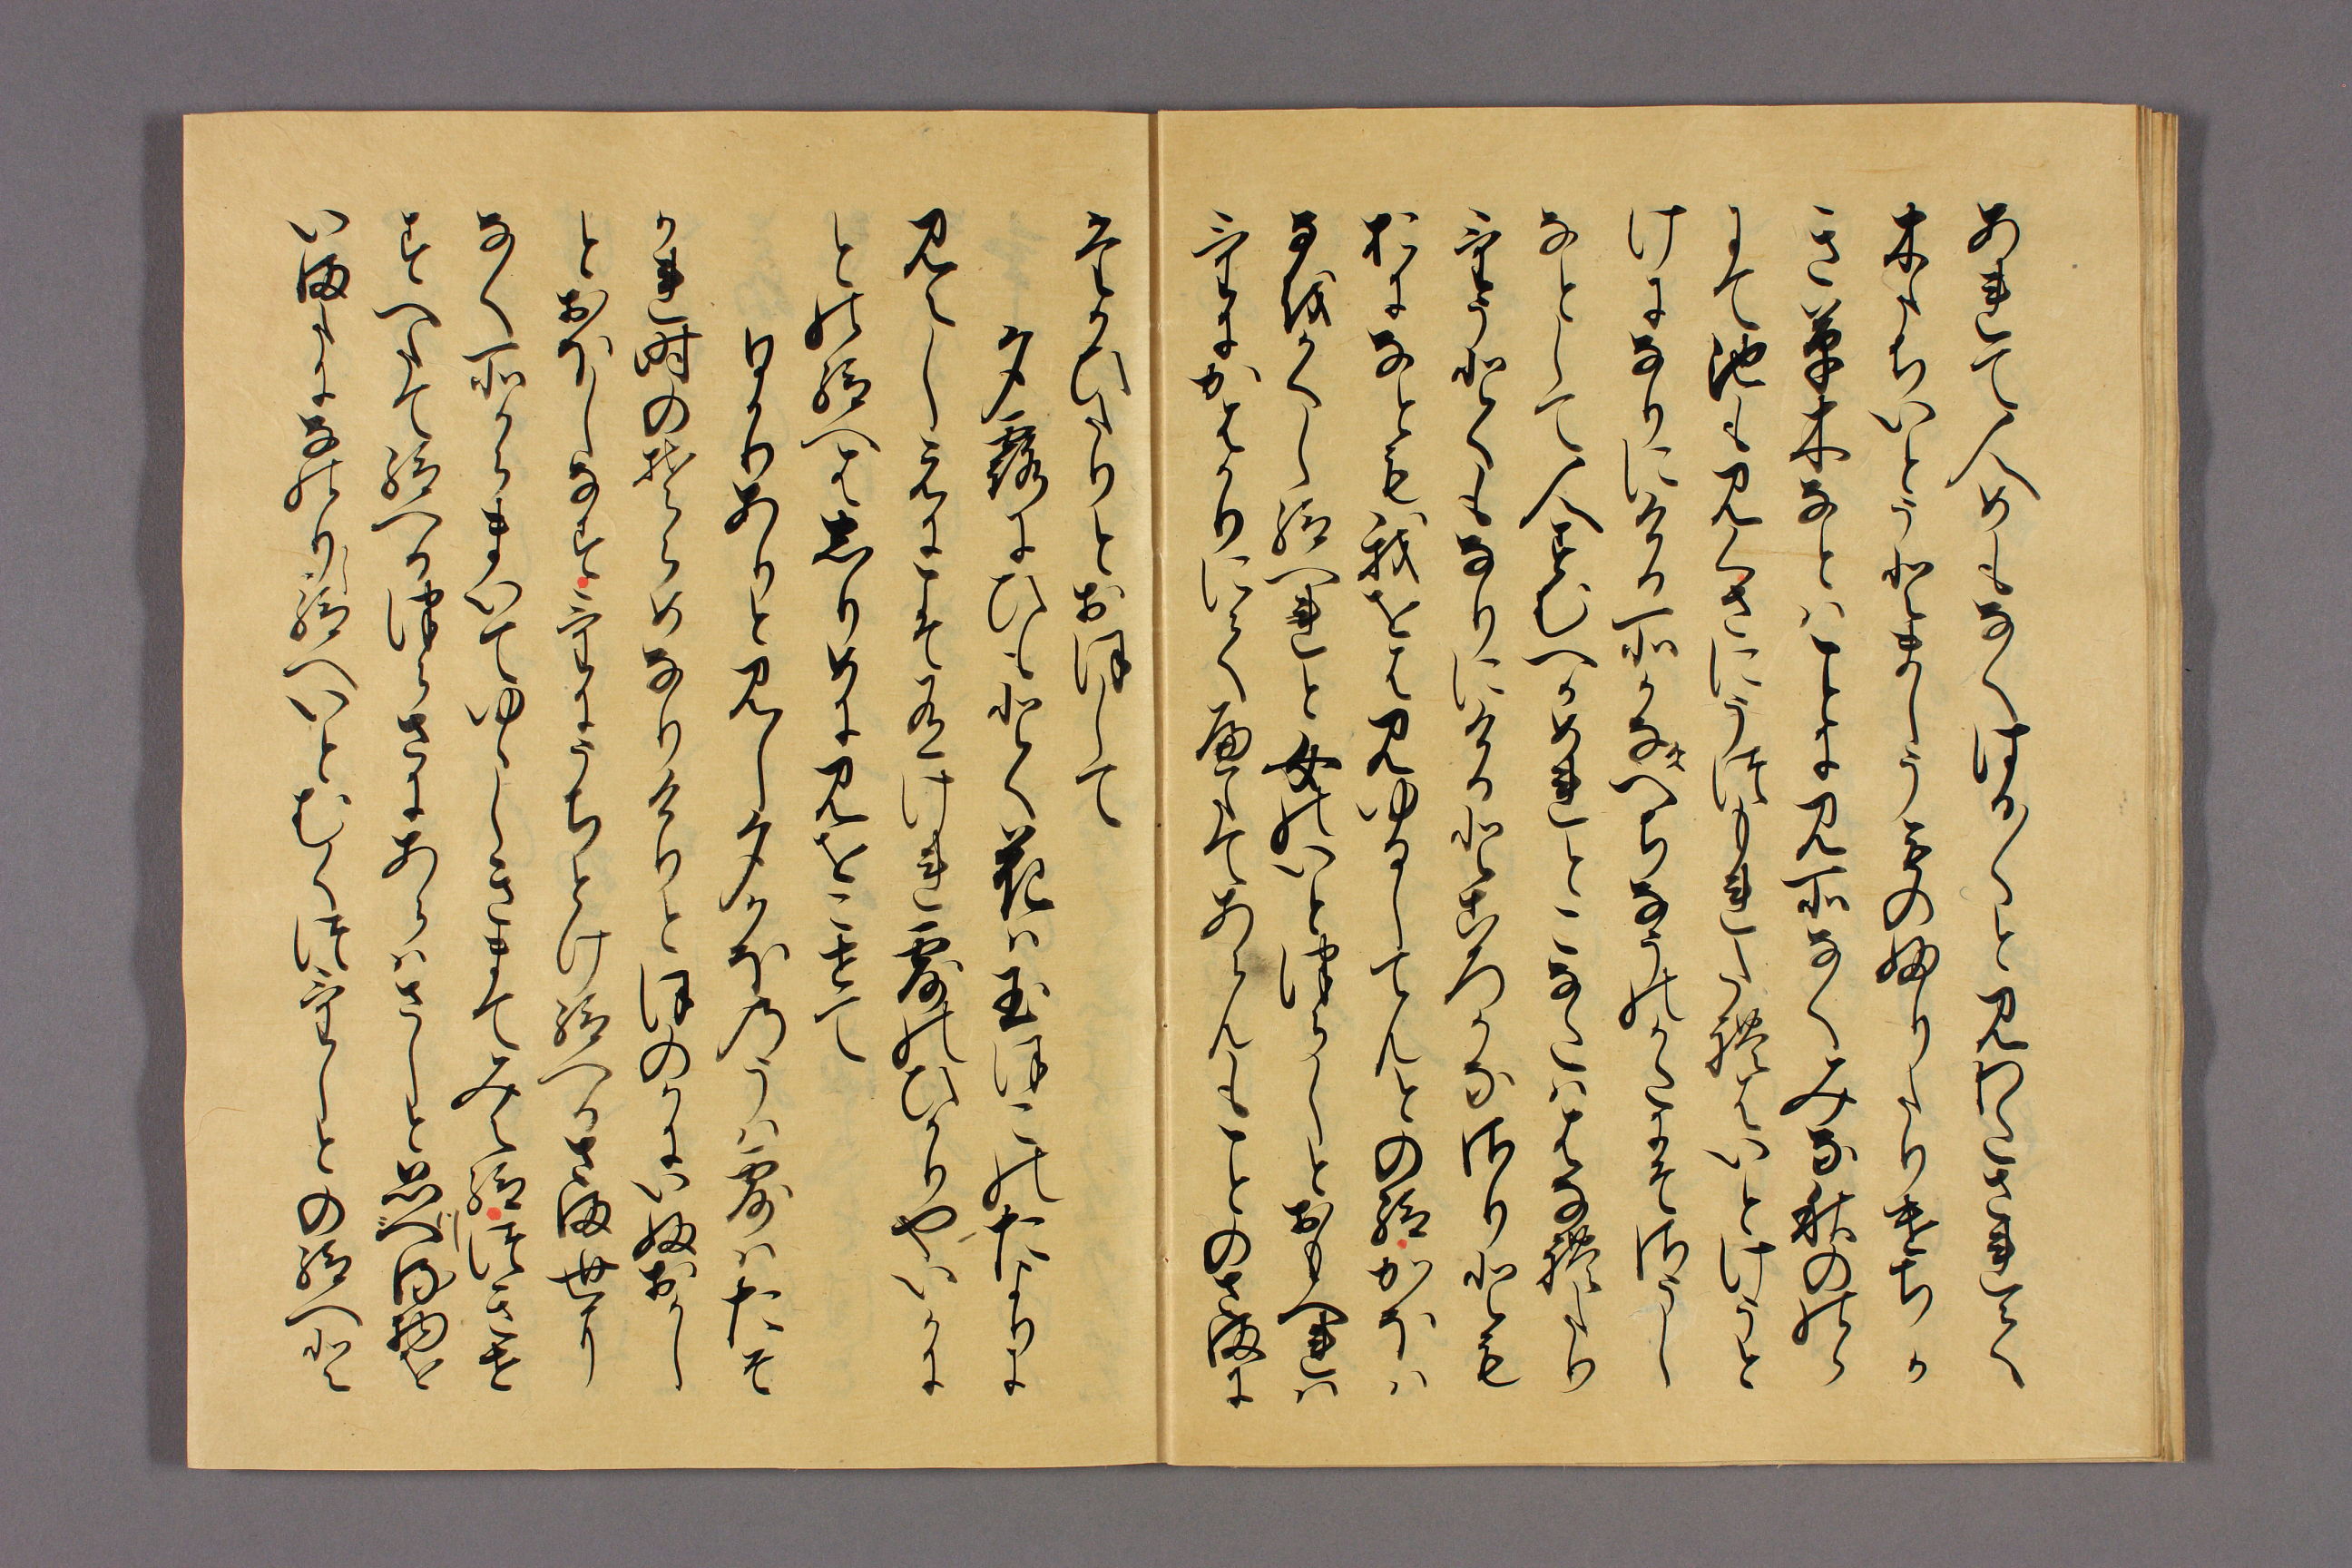 あれて人めもなくはる〱と見わたされて
木たちいとうとましうもの神りたりけちか
き草木なとはことに見所なくみな秋のゝら
にて池も見くさにうつもれたれはいとけうと
けになりにける所かなへちなうのかたにそさうし
なとして人すむへかめれとこなたははなれたり
けうとくもなりにける所かなさりとも
おになとも我をは見ゆるしてんとの給かほは
なをかくし給へれと女のいとつらしとおもへれは
けにかはかりにてへたてあらんもことのさまに
たかひたりとおほして
夕露にひもとく花は玉ほこのたよりに
見えしえにこそ有けれ露のひかりやいかに
との給へはしりめに見をこせて
ひかりありと見し夕かほのうは露はたそ
かれ時のそらめなりけりとほのかにいふおかし
とおほしなすけにうちとけ給へるさま世に
なく所からまいてゆゝしきまてみえ給つきせ
すへたて給へるつらさにあらはさしと思つる物を
いまたになのりし給へいとむくつけしとの給へと